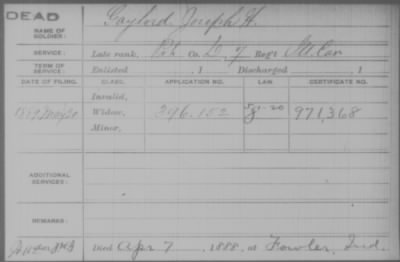 DEAD
NAME OF SOLDIER: Gaylord, Joseph H.
SERVICE: Late rank, Pvt Co. D, 7 Reg't Ill Cav
TERM OF SERVICE: Enlisted , 1 Discharged , 1
DATE OF FILING. CLASS. APPLICATION NO. LAW. CERTIFICATE NO.
Invalid,
1889 May 20 Widow, 396.152 971,368
Minor,
ADDITIONAL SERVICES:
REMARKS:
Died Apr 7, 1888, at Fowler, Ind.